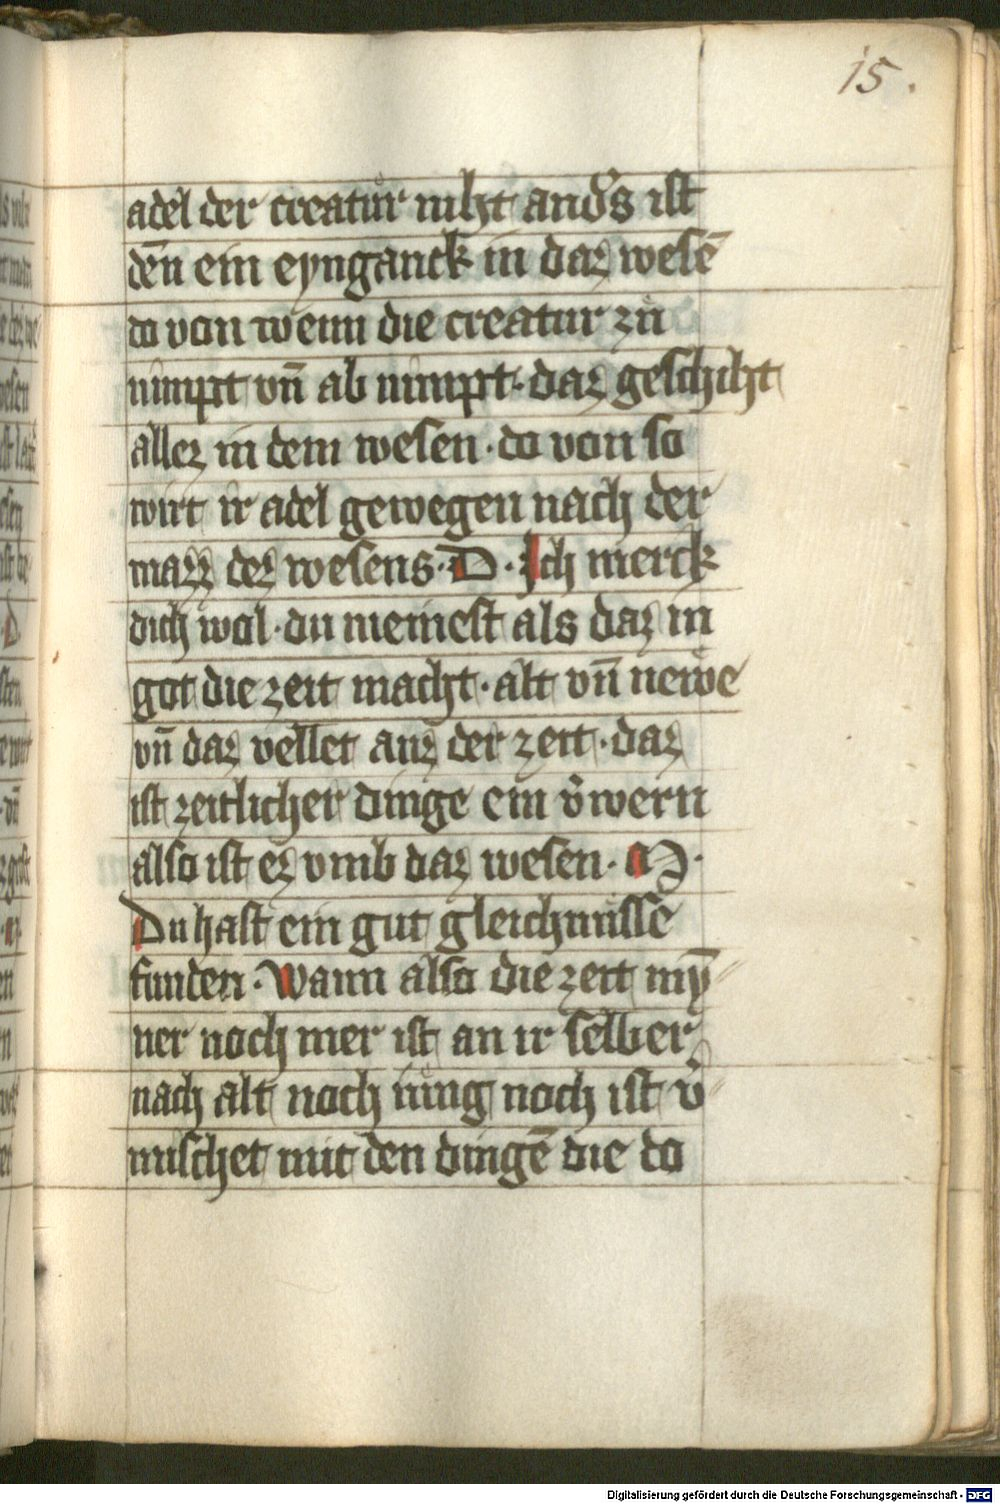 15.
adel der creatur niht anders ist
den̄ ein eynganck in daz wesē
do von wenn die creatur zů
nimpt vn̄ ab nimpt · daz geschiht
allez in dem wesen · do von so
wirt ir adel gewegen nach der
mazz dez wesens · D · Ich merck
dich wol · du meinest als daz in
got die zeit macht · alt vn̄ newe
vn̄ daz vellet auz der zeit · daz
ist zeitlicher dinge ein v̓wern
also ist ez vmb daz wesen · M ·
Du hast ein gut gleichnüsse
funden · Wann also die zeit mȳ
ner noch mer ist an ir selber
nach alt noch iüng noch ist v̓
mischet mit den dingē die do
Digitalisierung gefördert durch die Deutsche Forschungsgemeinschaft - DFG